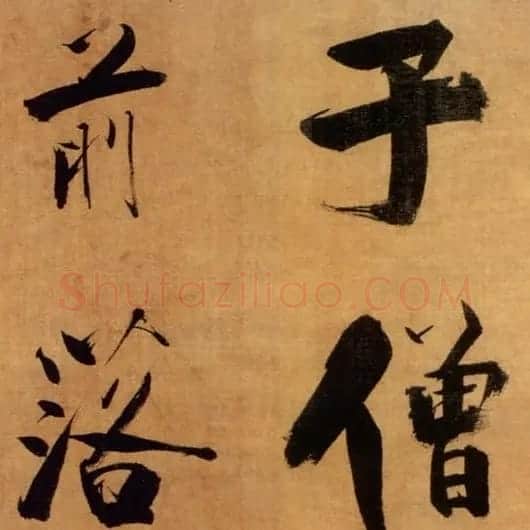 子僧
前落
Shufaziliao.COM